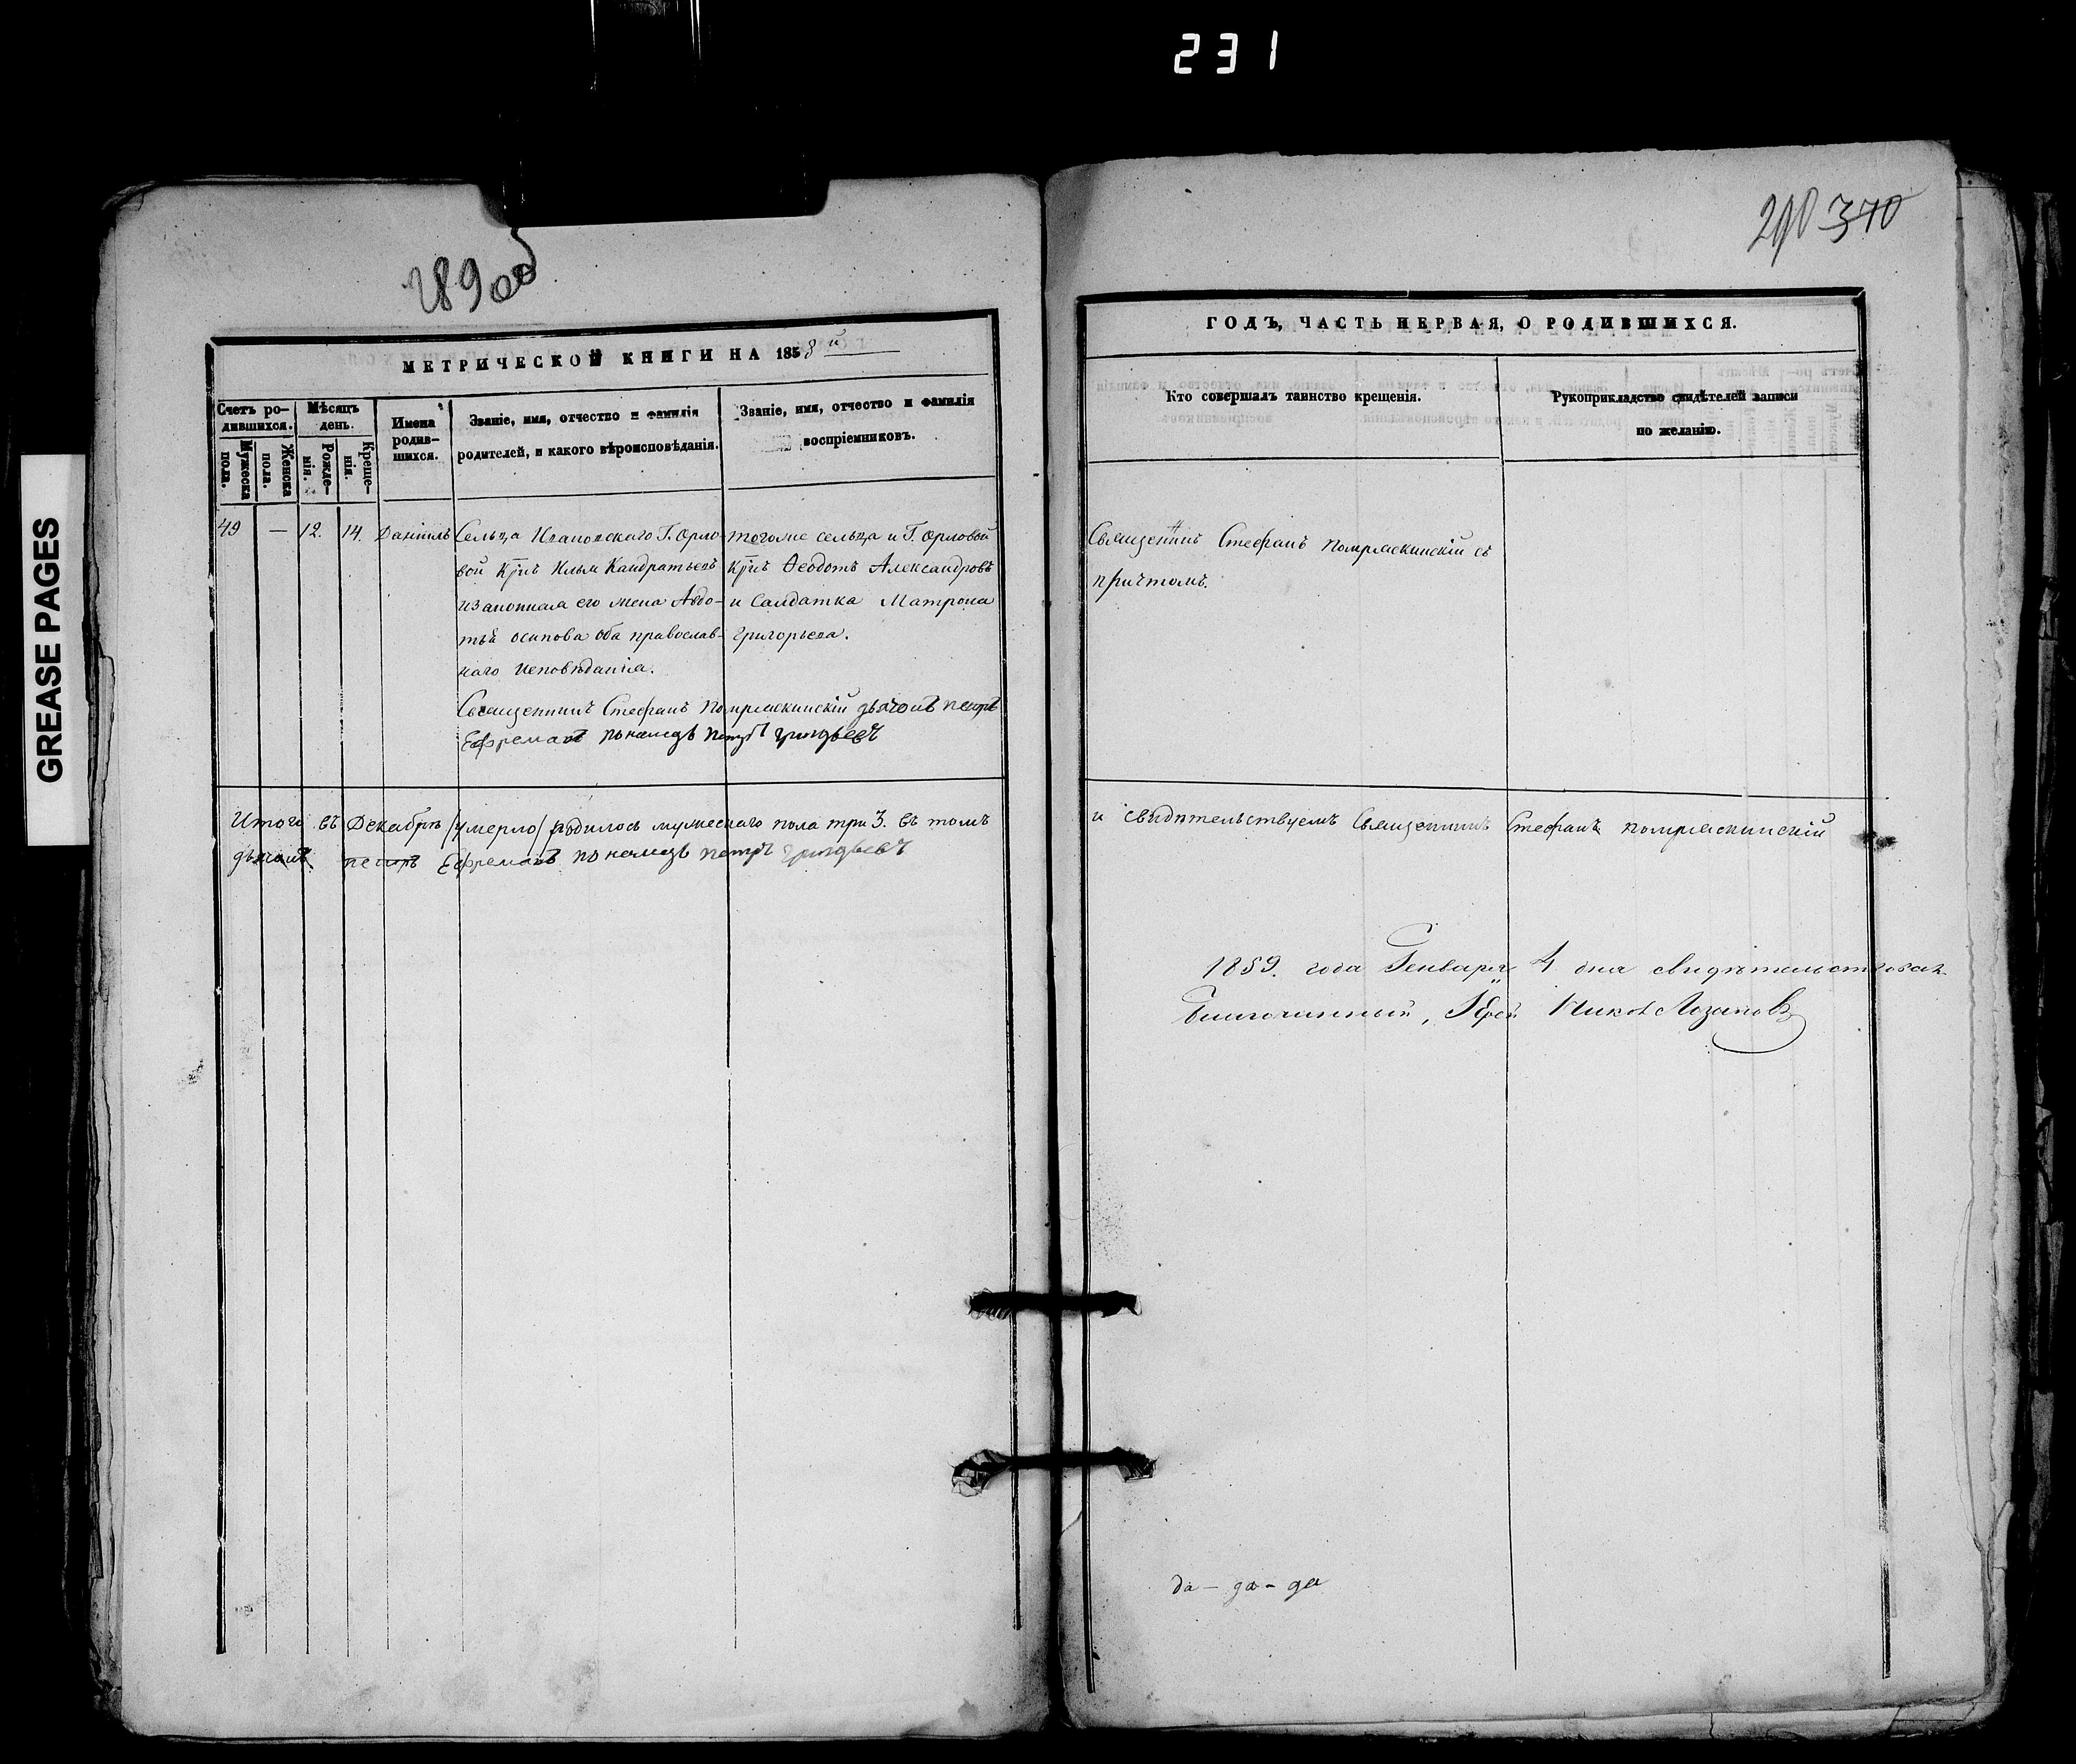 231
GREASE PAGES
289 об
290 370
МЕТРИЧЕСКОЙ КНИГИ НА 1858й
ГОДЪ, ЧАСТЬ ПЕРВАЯ, О РОДИВШИХСЯ.
Счетъ ро-
дившихся.
Мужеска
пола.
Женска
пола.
Мѣсяцъ
день.
Рожде-
нія.
Креще-
нія.
Имена
родив-
шихся.
Званіе, имя, отчество и фамилія
родителей, и какого вѣроисповѣданія.
Званіе, имя, отчество и фамилія
воспріемниковъ.
Кто совершалъ таинство крещенія.
Рукоприкладство свидѣтелей записи
по желанію.
49 — 12. 14. Даніилъ
Сельца Ивановскаго Г. Орло-
вой Крнъ Илья Кандратьевъ
изаконная его жена Авдо-
тья осипова оба православ-
наго исповѣданія.
тогоже сельца и Г. Орловой
Крнъ Ѳеодотъ Александровъ
и Салдатка Матрона
григорьева.
Священникъ Стефанъ съ
причтомъ.
Священникъ Стефанъ дьячокъ петръ
Ефремовъ пономарь петръ
Итого въ Декабрѣ /умерло/ родилось мужескаго пола три 3. въ томъ
и свидѣтельствуемъ Священникъ Стефанъ
дьячокъ петръ Ефремовъ пономарь петръ
1859. года Генваря 4 дня свидѣтельствовал
Благочинный, Іерей
да - да - да